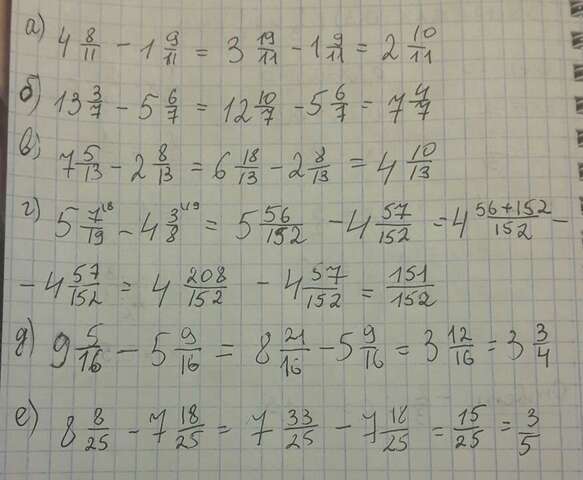 а) 4 8/11 − 1 9/11 = 3 19/11 − 1 9/11 = 2 10/11
б) 13 3/7 − 5 6/7 = 12 10/7 − 5 6/7 = 7 4/7
в) 7 5/13 − 2 8/13 = 6 18/13 − 2 8/13 = 4 10/13
г) 5 7/19 − 4 3/8 = 5 56/152 − 4 57/152 = 4 56+152/152 −
− 4 57/152 = 4 208/152 − 4 57/152 = 151/152
д) 9 5/16 − 5 9/16 = 8 21/16 − 5 9/16 = 3 12/16 = 3 3/4
е) 8 8/25 − 7 18/25 = 7 33/25 − 7 18/25 = 15/25 = 3/5